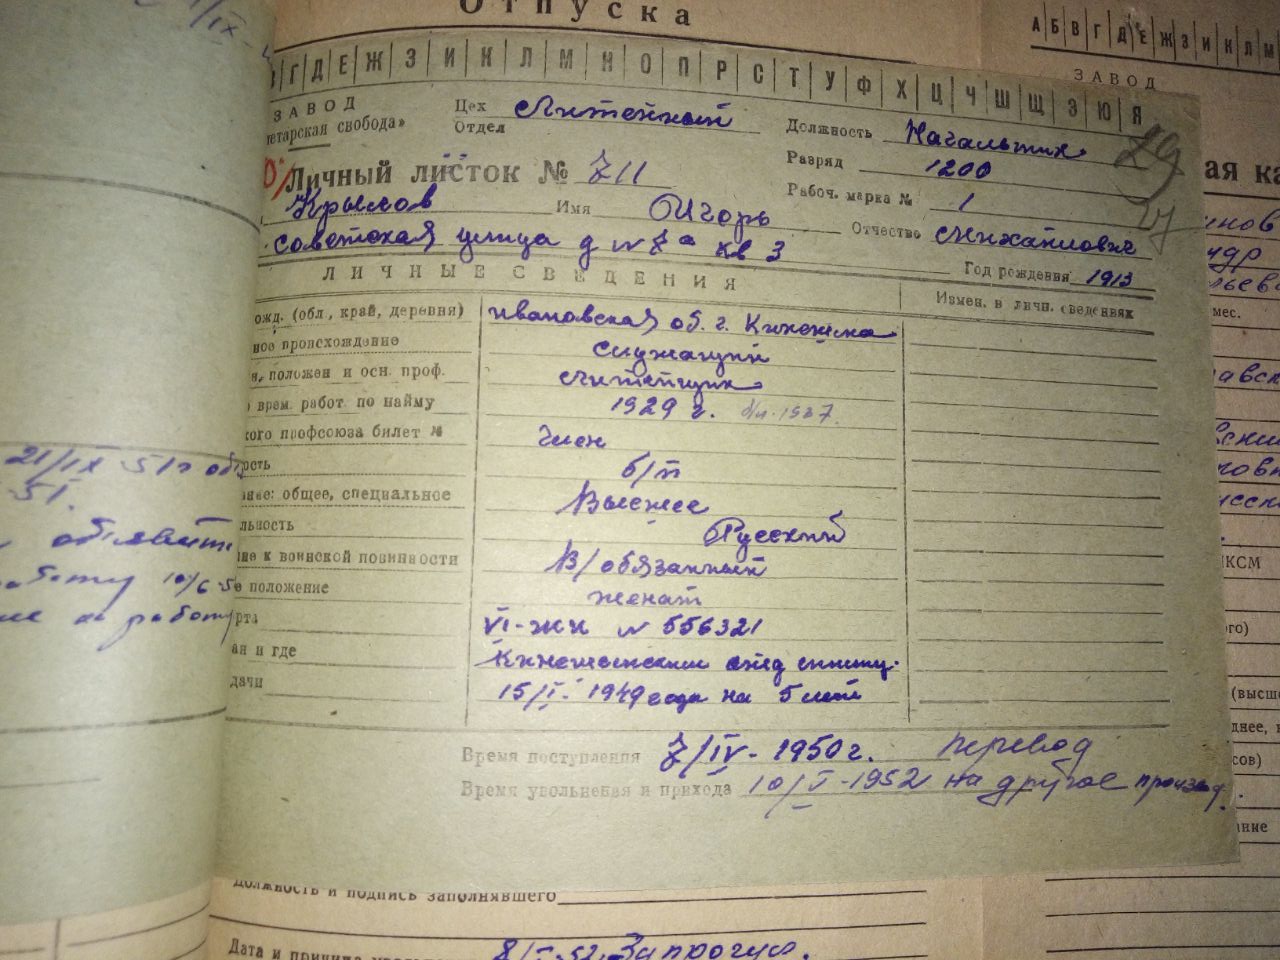 Отпуска
В Г Д Е Ж З И К Л М Н О П Р С Т У Ф Х Ц Ч Ш Щ Э Ю Я
ЗАВОД
тетарская свобода»
Цех Литейный
Отдел
Должность Начальник
Разряд 1200
Рабоч. марка № 1
29
Личный листок № 711
Крылов Имя Игорь Отчество Михайлович
советская улица д № 7а кв 3 Год рождения 1913
ЛИЧНЫЕ СВЕДЕНИЯ Измен. в личн. сведениях
ожд. (обл., край, деревня) Ивановская об. г. Кинешма
ное происхождение служащий
н, положен и осн. проф. литейщик
врем. работ. по найму 1929 г. 1937.
кого профсоюза билет № член
ость б/п
ние: общее, специальное Высшее
льность Русский
ие к воинской повинности В/обязанный
е положение женат
рта VI-ЖК № 556321
ан и где Кинешемским
дачи 15/I- 1949 года на 5 лет
Время поступления 7/IV-1950г. перевод
Время увольнения и прихода 10/V-1952 на другое производ.
Должность и подпись заполнявшего
Дата и причина
21/IX-51г
51.
объявить
работу 10/6-5
на работу
А Б В Г Д Е Ж З И К Л М
ЗАВОД
ая ка
нов
мес.
ЛКСМ
ого)
(высш
днее, н
сов)
ание